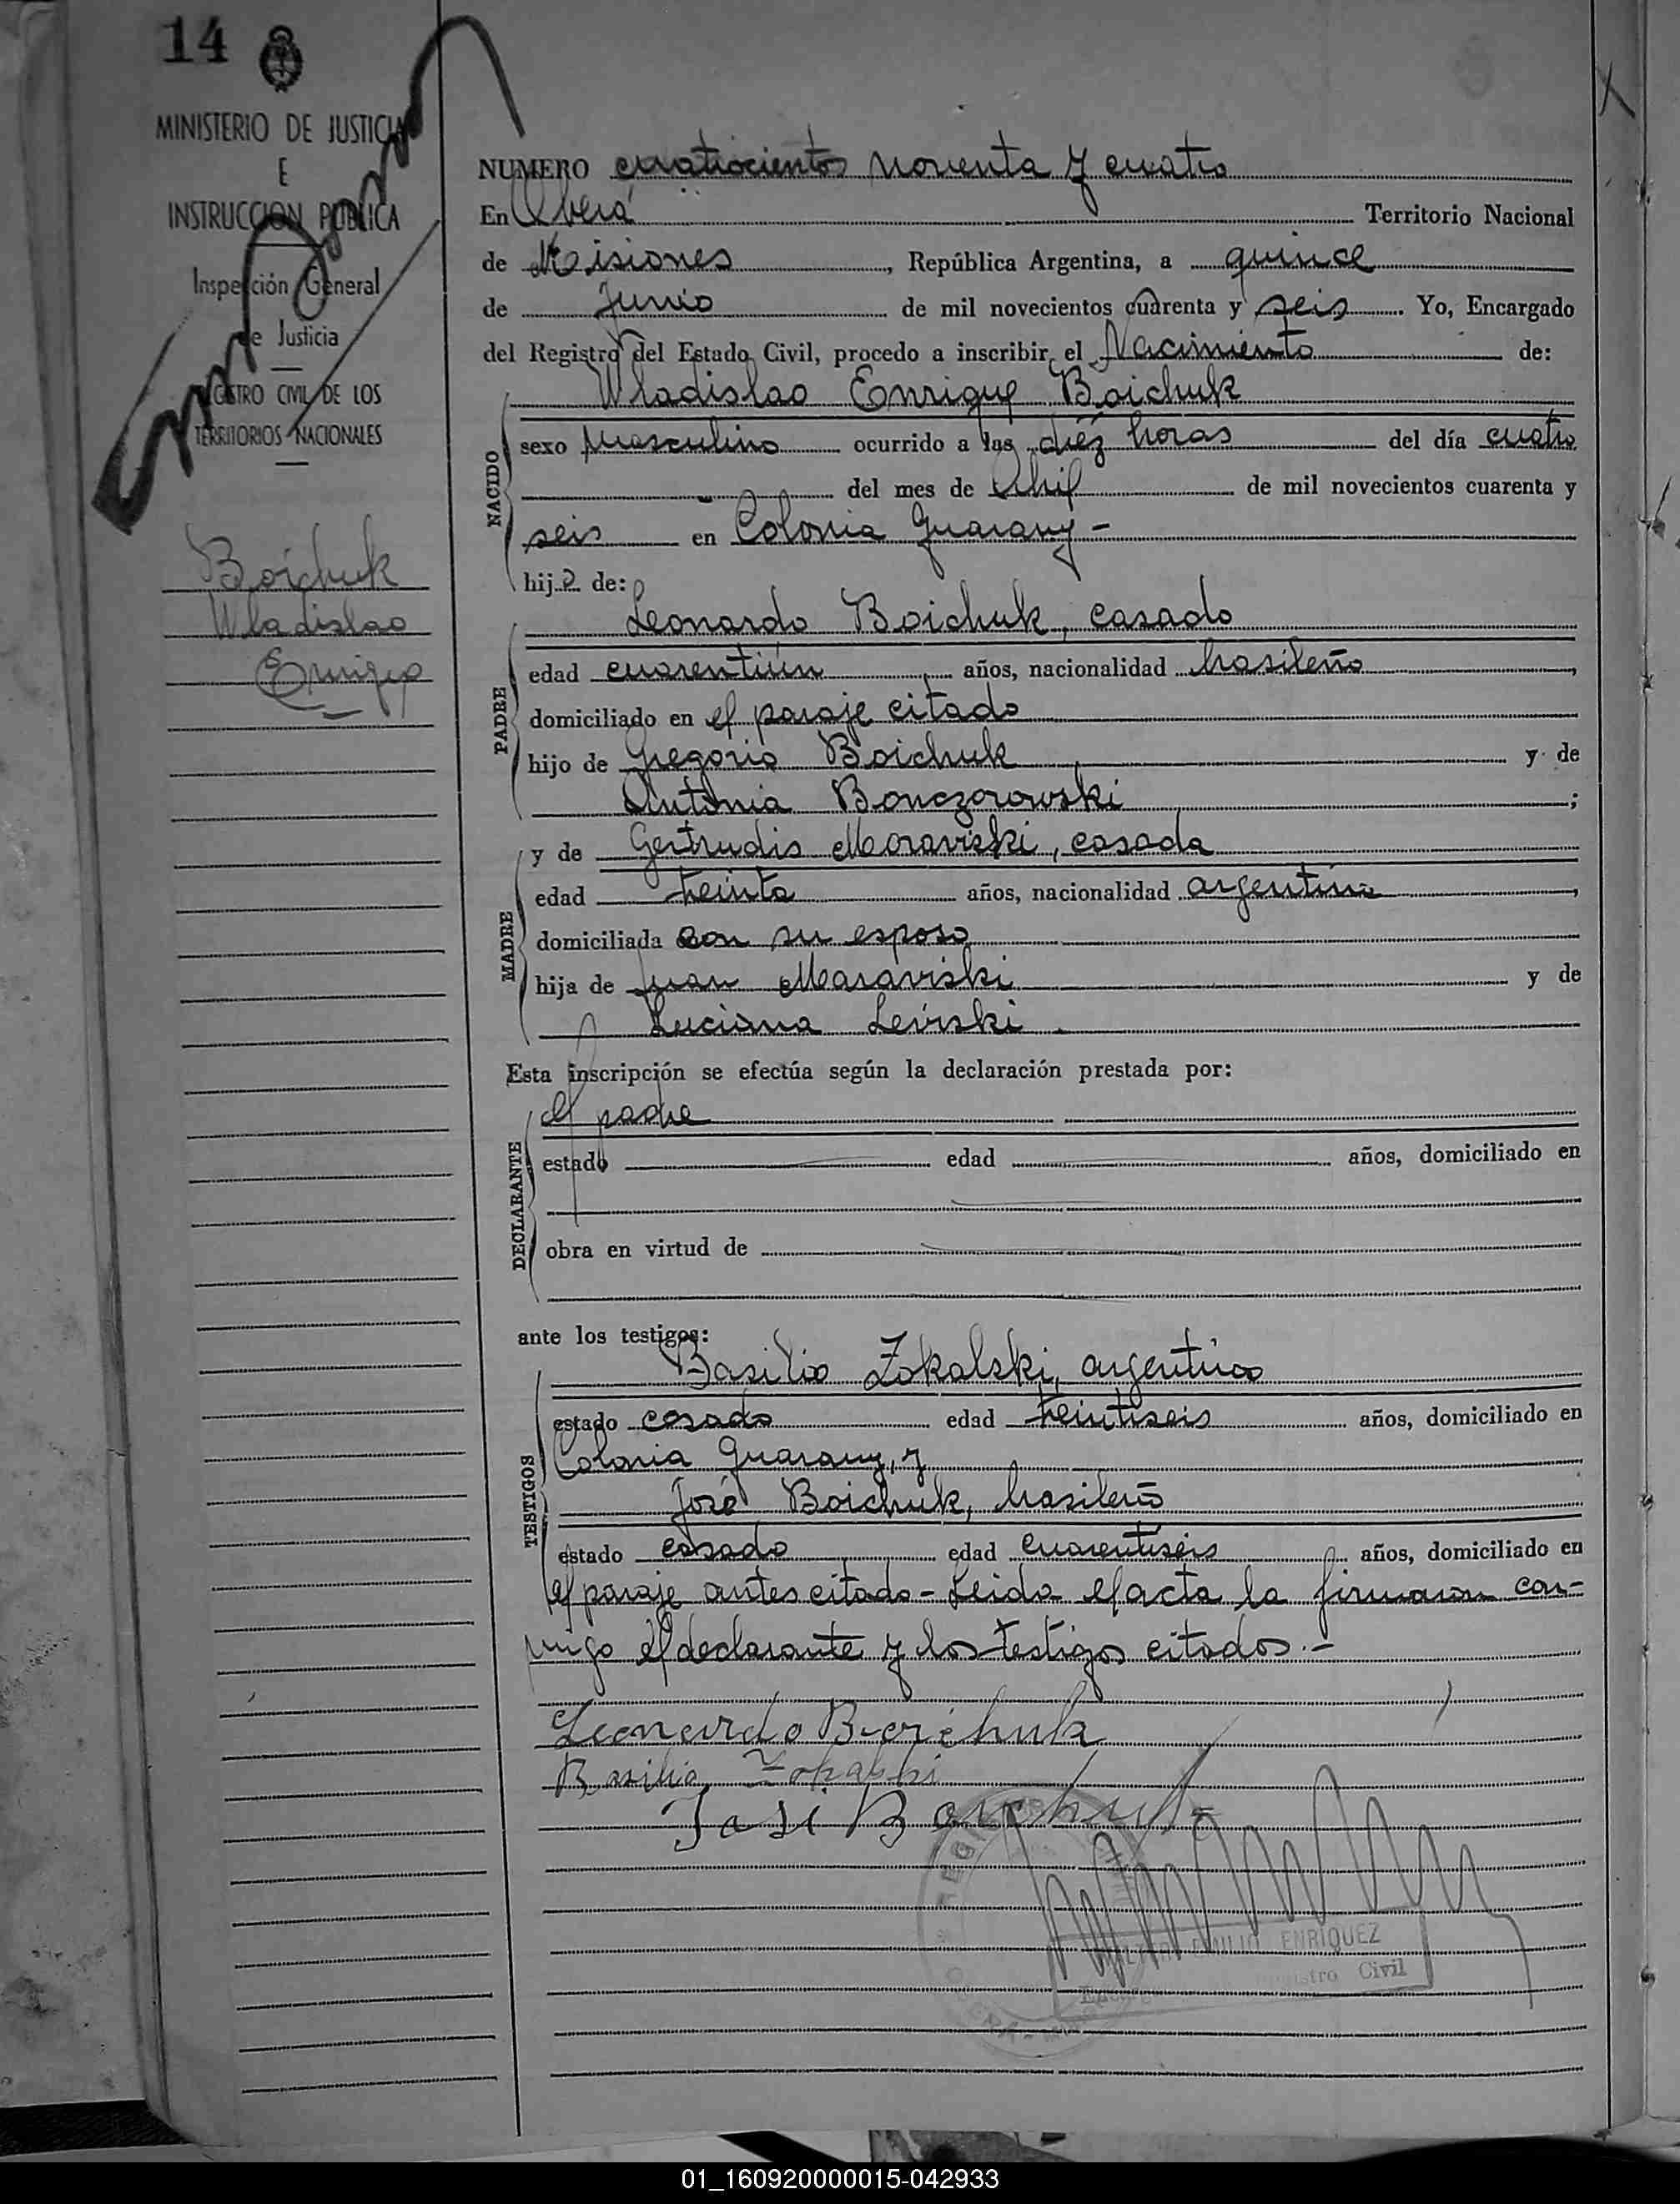 14
MINISTERIO DE JUSTICIA
E
INSTRUCCION PUBLICA
Inspección General
de Justicia
REGISTRO CIVIL DE LOS
TERRITORIOS NACIONALES
Boichuk
Wladislao
Enrique
NUMERO cuatrocientos noventa y cuatro
En Oberá Territorio Nacional
de Misiones, República Argentina, a quince
de Junio de mil novecientos cuarenta y seis. Yo, Encargado
del Registro del Estado Civil, procedo a inscribir el Nacimiento de:
Wladislao Enrique Boichuk
NACIDO
sexo masculino ocurrido a las diéz horas del día cuatro
del mes de Abril de mil novecientos cuarenta y
seis en Colonia Guarany -
hijo de:
PADRE
Leonardo Boichuk, casado
edad cuarentiún años, nacionalidad brasileño,
domiciliado en el paraje citado
hijo de Gregorio Boichuk y de
Antonia Bonczorowski;
MADRE
y de Gertrudis Moraviski, casada
edad treinta años, nacionalidad argentina,
domiciliada con su esposo
hija de Juan Maraviski y de
Luciana Leviski.
Esta inscripción se efectúa según la declaración prestada por:
DECLARANTE
el padre
estado edad años, domiciliado en
obra en virtud de
ante los testigos:
TESTIGOS
Basilio Zokalski, argentino
estado casado edad treintiseis años, domiciliado en
Colonia Guarany, y
José Boichuk, brasileño
estado casado edad cuarentiseis años, domiciliado en
el paraje antes citado - Leida el acta la firmaron con-
migo el declarante y los testigos citados.-
Leonardo Boichuk
Basilio Zokalski
José Boichuk
EMILIO ENRIQUEZ
Registro Civil
01_160920000015-042933